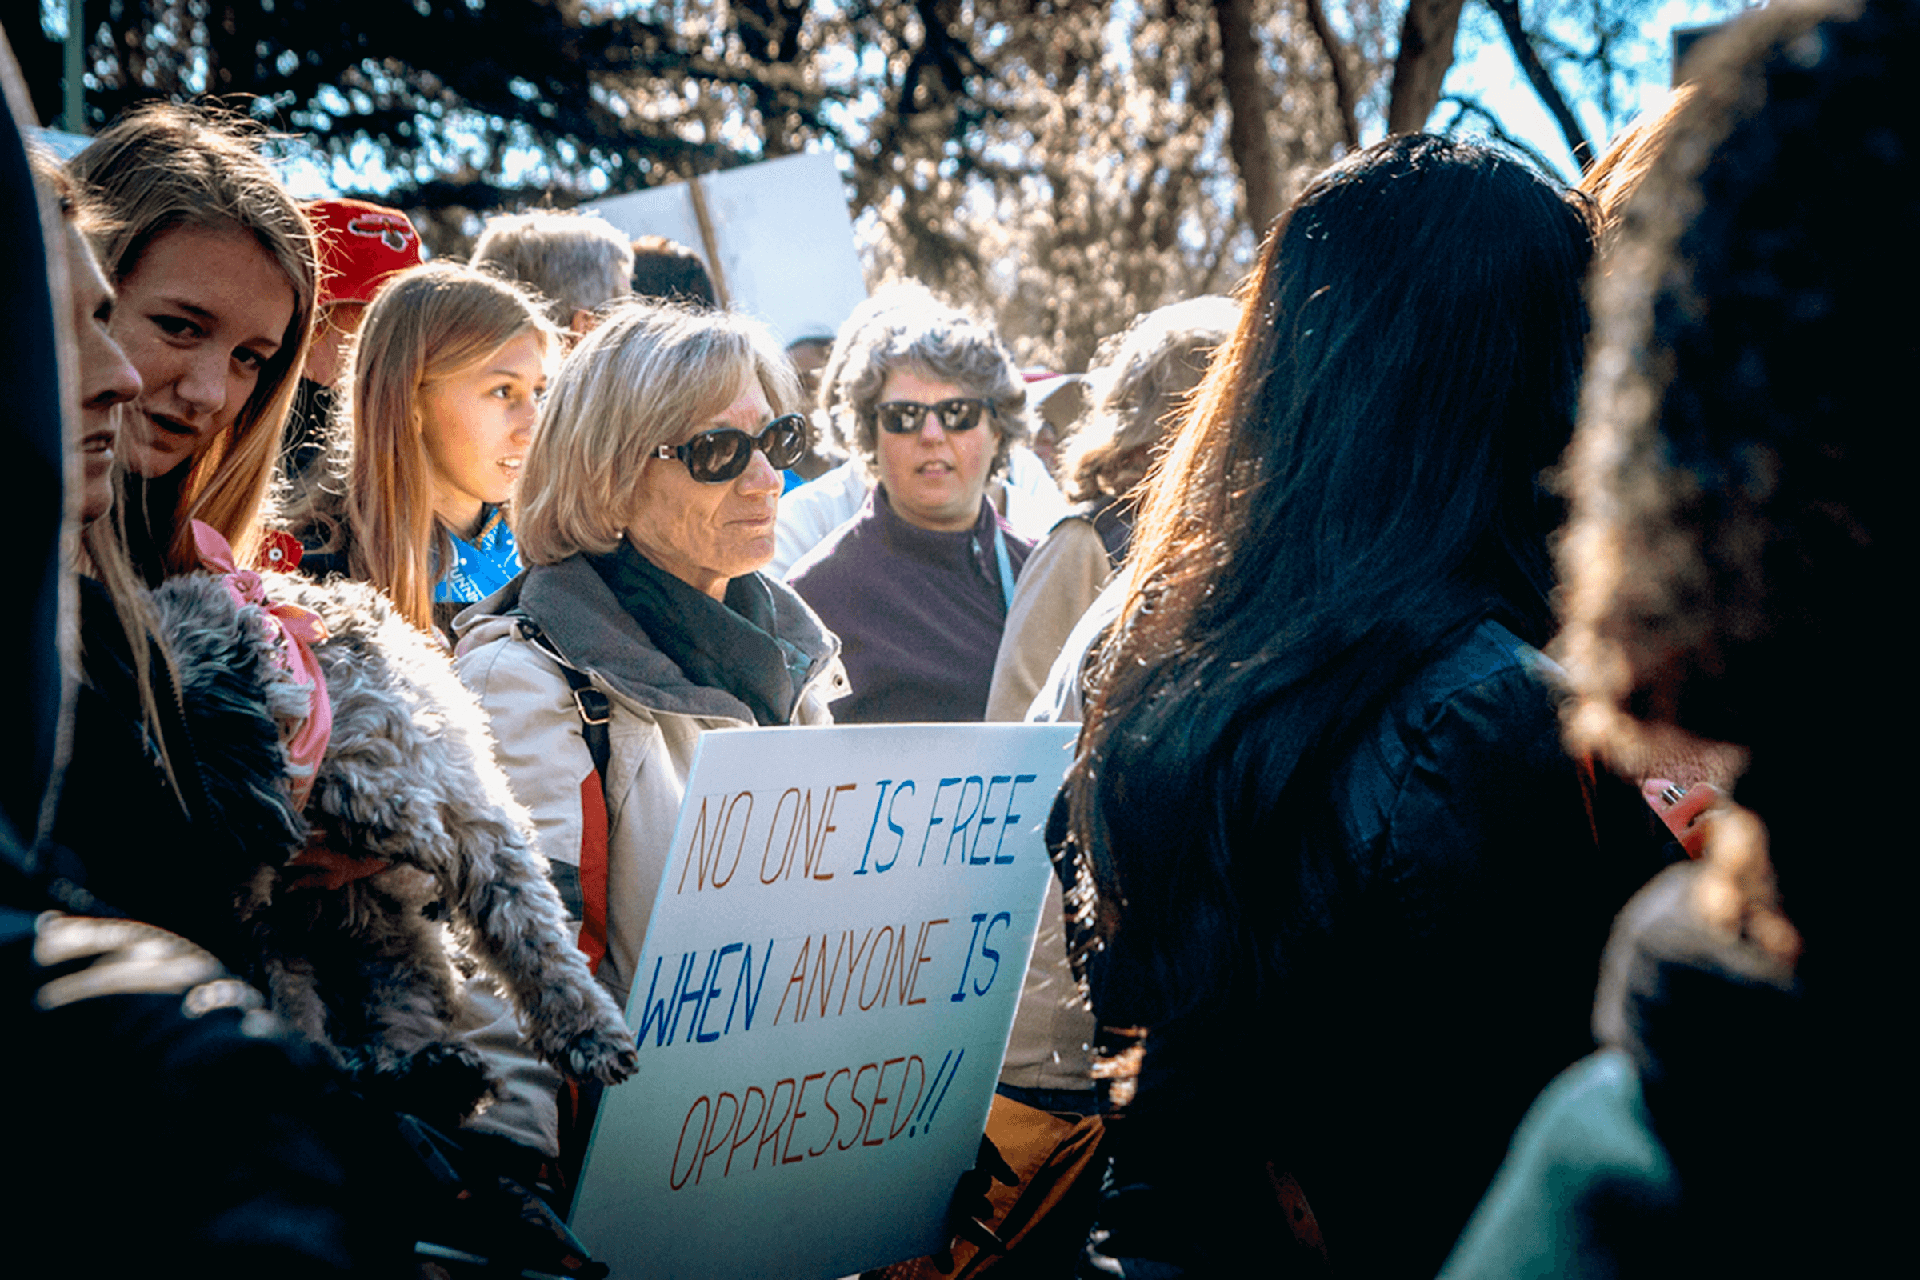 NO ONE IS FREE
WHEN ANYONE IS
OPPRESSED!!